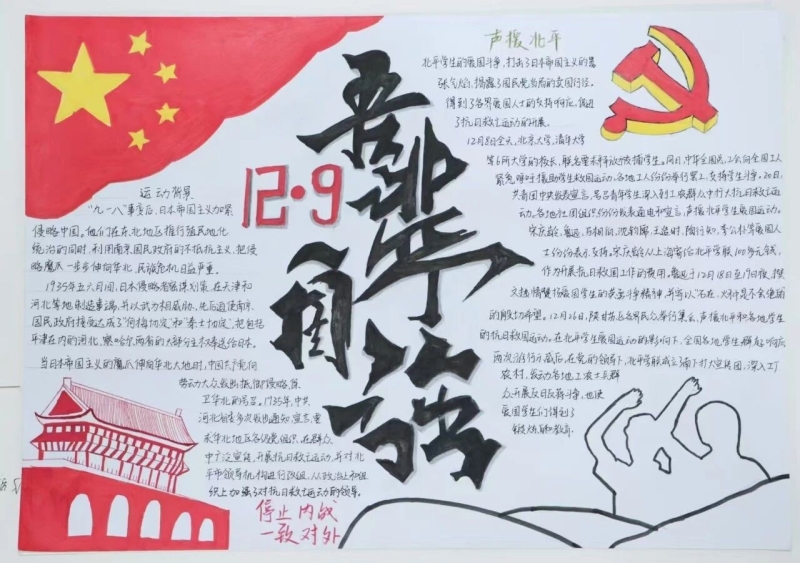 吾辈自强
12·9
运动背景
“九一八”事变后,日本帝国主义加紧
侵略中国。他们在东北地区推行殖民地化
统治的同时,利用南京国民政府的不抵抗主义,把侵
略魔爪一步步伸向华北,民族危机日益严重。
1935年五六月间,日本侵略者蓄谋划策,在天津和
河北等地制造事端,并以武力相威胁,先后迫使南京
国民政府接受达成了“何梅协定”和“秦土协定”,把包括
平津在内的河北、察哈尔两省的大部分主权奉送给日本。
当日本帝国主义的魔爪伸向华北大地时,中国共产党向
劳动大众发出抵御侵略、保
卫华北的号召。1935年,中共
河北省委多次发出通知、宣言,要
求华北地区各级党组织,在群众
中广泛宣传,开展抗日救亡运动,并对北
平市领导机构进行改组,从政治上和组
织上加强了对抗日救亡运动的领导。
停止内战
一致对外
声援北平
北平学生的爱国斗争,打击了日本帝国主义的嚣
张气焰,揭露了国民党当局的卖国行径。
得到了各界爱国人士的支持响应,促进
了抗日救亡运动的开展。
12月8日全天,北京大学、清华大学
等6所大学的校长,联名要求释放被捕学生。同日,中华全国总工会向全国工人
紧急呼吁援助学生救国运动。各地工人纷纷举行罢工,支持学生斗争。20日,
共青团中央发表宣言,号召青年学生深入到工农群众中扩大抗日救亡运
动。各地社团组织纷纷发表通电和宣言,声援北平学生爱国运动。
宋庆龄、鲁迅、邹韬奋、沈钧儒、王造时、陶行知、李公朴等爱国人
士纷纷表示支持。宋庆龄从上海寄给北平学联100多元钱,
作为开展抗日救国工作的费用。鲁迅于12月18日至19日夜,撰
文热情赞扬爱国学生的英勇斗争精神,并寄以“石在,火种是不会绝的”
的殷切希望。12月26日,陕甘苏区各界民众举行集会,声援北平和各地学生
的抗日救国运动。在北平学生爱国运动的影响下,全国各地学生群起响应
两次游行示威后,在党的领导下,北平学联成立南下扩大宣传团,深入工厂
农村,发动各地工农士兵群
众开展反日反蒋斗争,也使
爱国学生们得到了
锻炼和教育。